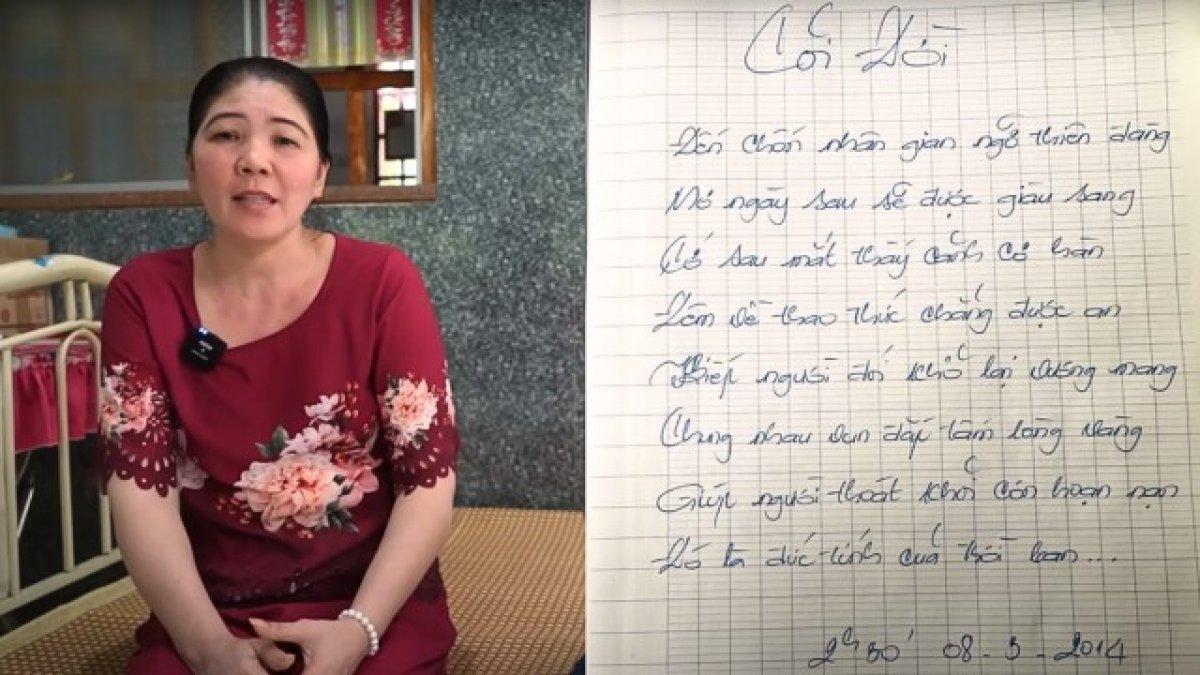 Cõi Đời
Đến chốn nhân gian ngỡ thiên đàng
Mơ ngày sau sẽ được giàu sang
Cớ sau mắt thấy cảnh cơ hàn
Đêm về thao thức chẳng được an
Kiếp người đói khổ lại vương mang
Chung nhau vun đắp tấm lòng vàng
Giúp người thoát khỏi cơn hoạn nạn
Đó là đức tính của thời ban...
2h30' 08-3-2014